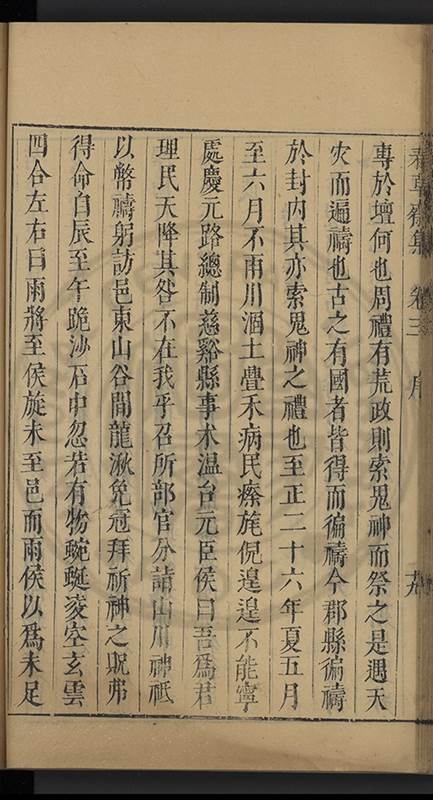 春草齋集 卷三 序
專於壇何也周禮有荒政則索鬼神而祭之是遇天
灾而遍禱也古之有國者皆得而徧禱今郡縣徧禱
於封内其亦索鬼神之禮也至正二十六年夏五月
至六月不雨川涸土疊禾病民瘵旄倪遑遑不能寧
處慶元路總制慈谿縣事术温台元臣侯曰吾爲君
理民天降其咎不在我乎召所部官分詣山川神祇
以幣禱躬訪邑東山谷間龍湫免冠拜祈神之貺弗
得命自辰至午跪沙石中忽若有物蜿蜒凌空玄雲
四合左右曰雨將至侯旋未至邑而雨侯以爲未足